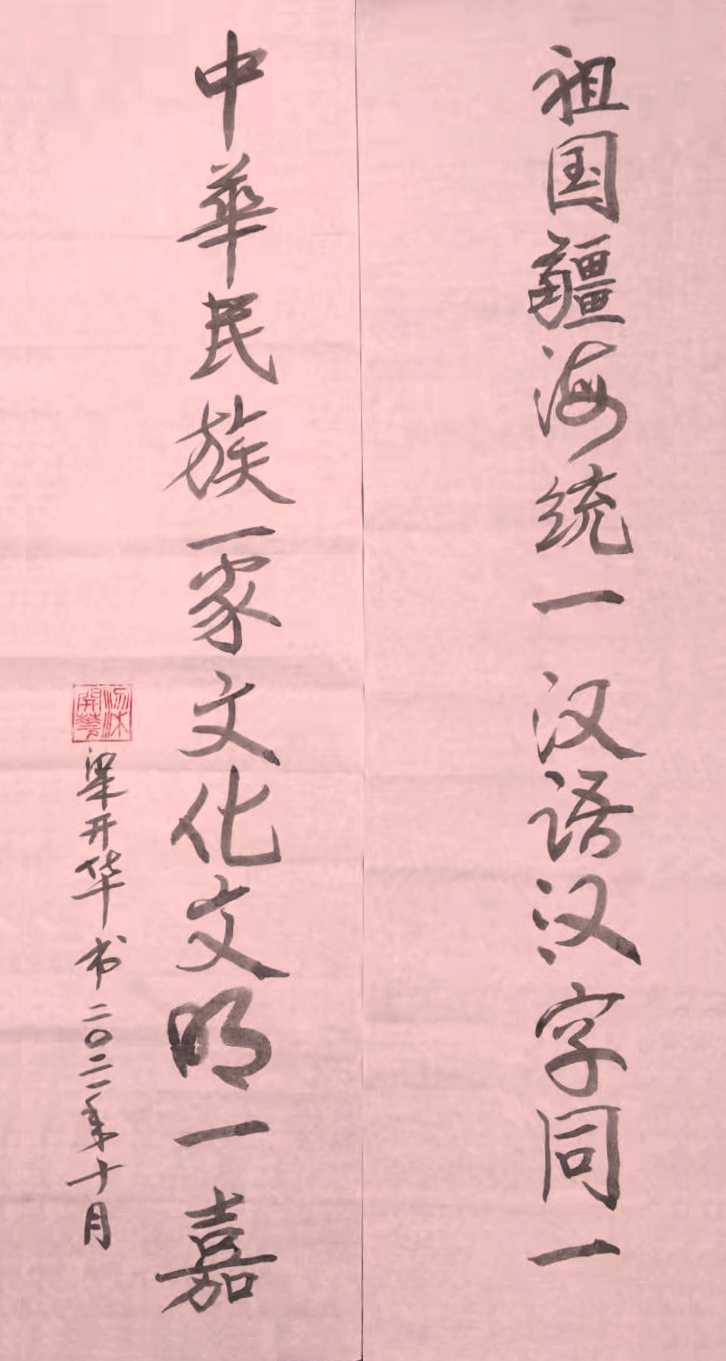 祖国疆海统一汉语汉字同一
中華民族一家文化文明一嘉
梁开华书二〇二一年十月